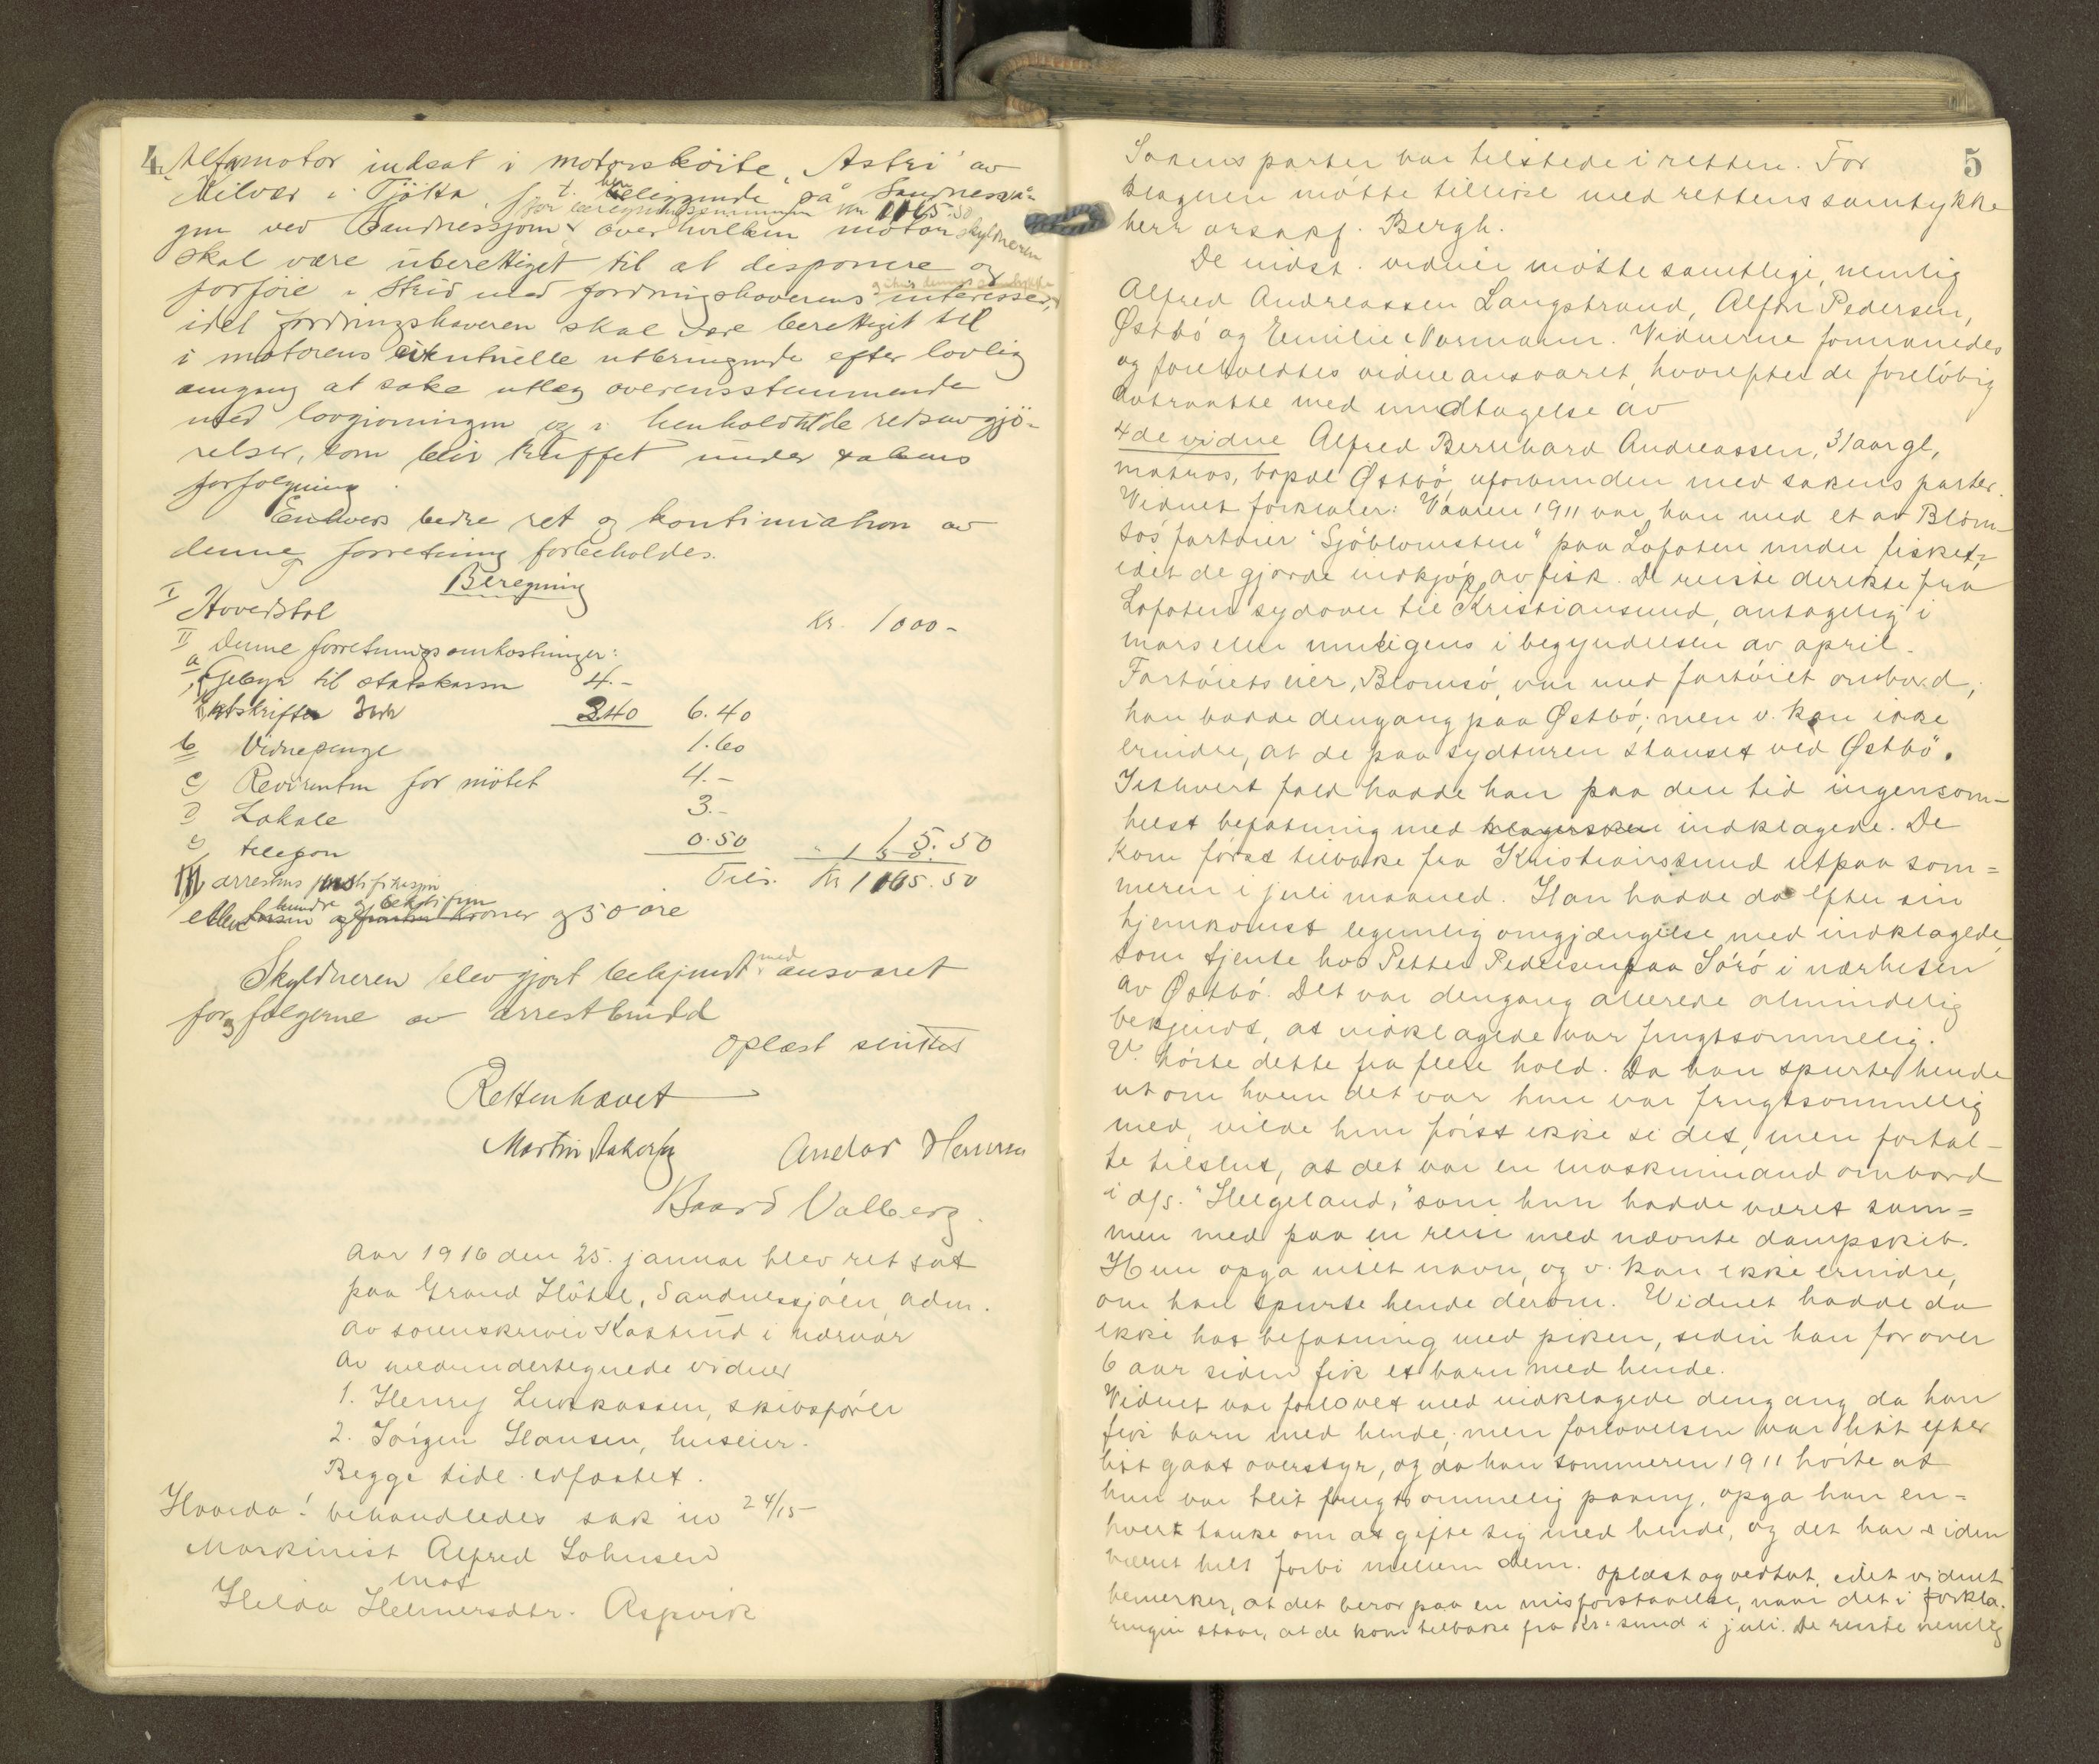 4.
Alfamotor indsat i motorskøite "Astri" av
Hilvær i Tjøtta, f. t. henliggende på Sandnessjø-
for beregningssummen kr 1165.50
gen ved Sandnessjøen over hvilken motor skyldneren
skal være uberettiget til at disponere og
forføie i strid med fordringshaverens interesser,
idet fordringshaveren skal være berettiget til
i motorens eventuelle utbringende efter lovlig
omgang at søke utlæg overensstemmende
med lovgivningen og i henhold til de retsavgjø-
relser, som blir truffet under sakens
forfølgning.
Enhvers bedre ret og kontinuation av
denne forretning forbeholdes.
Beregning
I Hovedstol Kr. 1000-
II Denne forretnings omkostninger:
a, Gebyr til statskassen 4.-
Utskrifter 240 6.40
b Vidnepenge 1.60
c) Revirenten for møtet 4.-
d) Lokale 3.-
e) telefon 0.50 " 15.50
III arrestens justifikasjon 150.
Tils. Kr 1165.50
elleve hundre og sekstifem kroner og 50 øre
Skyldneren blev gjort bekjendt med ansvaret
for og følgerne av arrestbrudd
Oplæst sluttet
Retten hævet
Martin Jakobsen Andor Hansen
Baard Valberg.
Aar 1916 den 25. januar blev ret sat
paa Grand Hôtel, Sandnessjøen, adm.
av sorenskriver Kastrud i nærvær
av medundertegnede vidner
1. Henry Lukkassen, skibsfører
2. Jørgen Hansen, huseier.
Begge tidl. edfæstet.
Hvorda! behandledes sak no 24/15
Maskinist Alfred Johnsen
mot
Hilda Helmersdtr. Aspvik
5
Sakens parter var tilstede i retten. For
klageren møtte tillike med rettens samtykke
herr orsakf. Bergh.
De indst. vidner møtte samtlige, nemlig
Alfred Andreassen Langstrand, Alfon Pedersen,
Østbö og Emilie Normann. Vidnerne formanedes
og foreholdtes vidneansvaret, hvorefter de foreløbig
avtraatte med undtagelse av
4de vidne Alfred Bernhard Andreassen, 31 aar gl,
matros, bopæl Østbö, uforbunden med sakens parter.
Vidnet forklaler: Vaaren 1911 var han med et av Blom-
sös fartøier "Sjöblomsten" paa Lofoten under fisket,
idet de gjorde indkjøp av fisk. De reiste direkte fra
Lofoten sydover til Kristiansund, antagelig i
mars eller muligens i begyndelsen av april.
Fartøiets eier, Blomsö, var med fartøiet ombord;
han bodde dengang paa Østbö; men v. kan ikke
erindre, at de paa sydturen stanset ved Østbö.
I ethvert fald hadde han paa den tid ingensom-
helst befatning med klagersken indklagede. De
kom først tilbake fra Kristianssund utpaa som=
meren i juli maaned. Han hadde da efter sin
hjemkomst legemlig omgjængelse med indklagede,
som tjente hos Petter Pedersen paa Sörö i nærheten
av Østbö. Det var dengang allerede almindelig
bekjendt, at indklagede var frugtsommelig.
V. hørte dette fra flere hold. Da han spurte hende
ut om hvem det var hun var frugtsommelig
med, vilde hun først ikke si det, men fortal-
te tilslut, at det var en maskinmand ombord
i d/s. "Helgeland," som hun hadde været sam=
men med paa en reise med nævnte dampskib.
Hun opga intet navn, og v. kan ikke erindre,
om han spurte hende derom. Vidnet hadde da
ikke hat befatning med piken, siden han for over
6 aar siden fik et barn med hende.
Vidnet var forlovet med indklagede dengang da han
fik barn med hende; men forlovelsen var litt efter
litt gaat overstyr, og da han sommeren 1911 hørte at
hun var blit frugtsommelig paany, opga han en=
hvert tanke om at gifte sig med hende, og det har siden
været helt forbi mellem dem. Oplæst og vedtat, idet vidnet
bemerker, at det beror paa en misforstaaelse, naar det i forkla-
ringen staar, at de kom tilbake fra Kr.sund i juli. De reiste nemlig